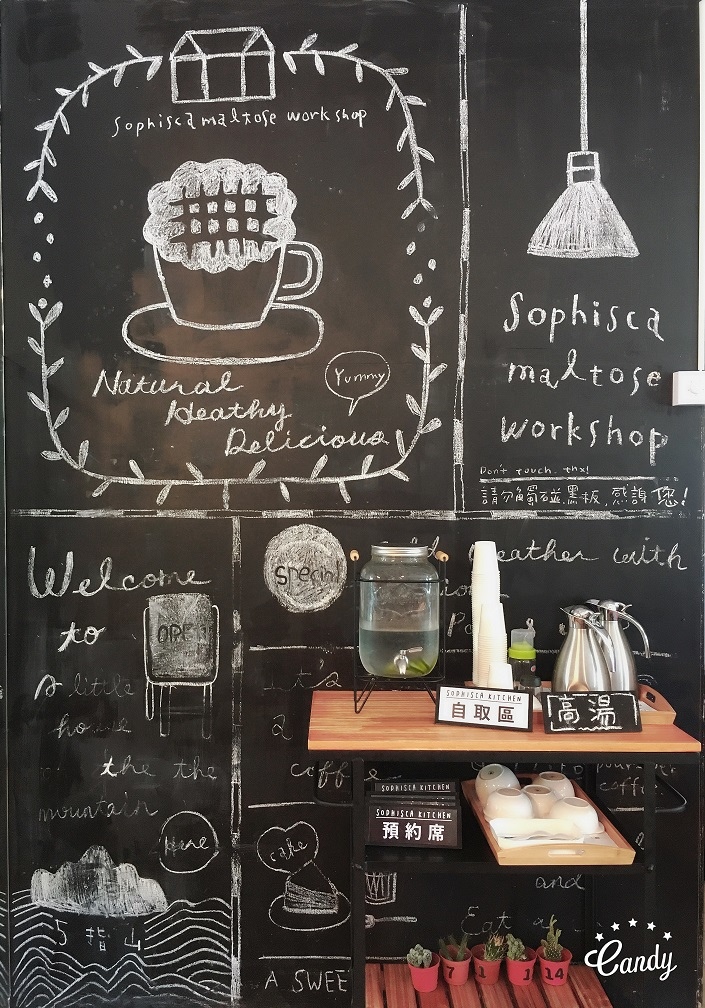 Sophisca maltose workshop
Natural
Heathy
Delicious
Yummy
Sophisca
maltose
workshop
Don't touch. thx!
請勿觸碰黑板,感謝您!
Welcome
to
OPEN
A little
house
the the
mountain
Here
5指山
Special
weather with
It's
a
coffee
coffee
cake
and
Eat
A SWEE
SOPHISCA KITCHEN
自取區
高湯
SOPHISCA KITCHEN
SOPHISCA KITCHEN
預約席
7 1 1 14
Candy